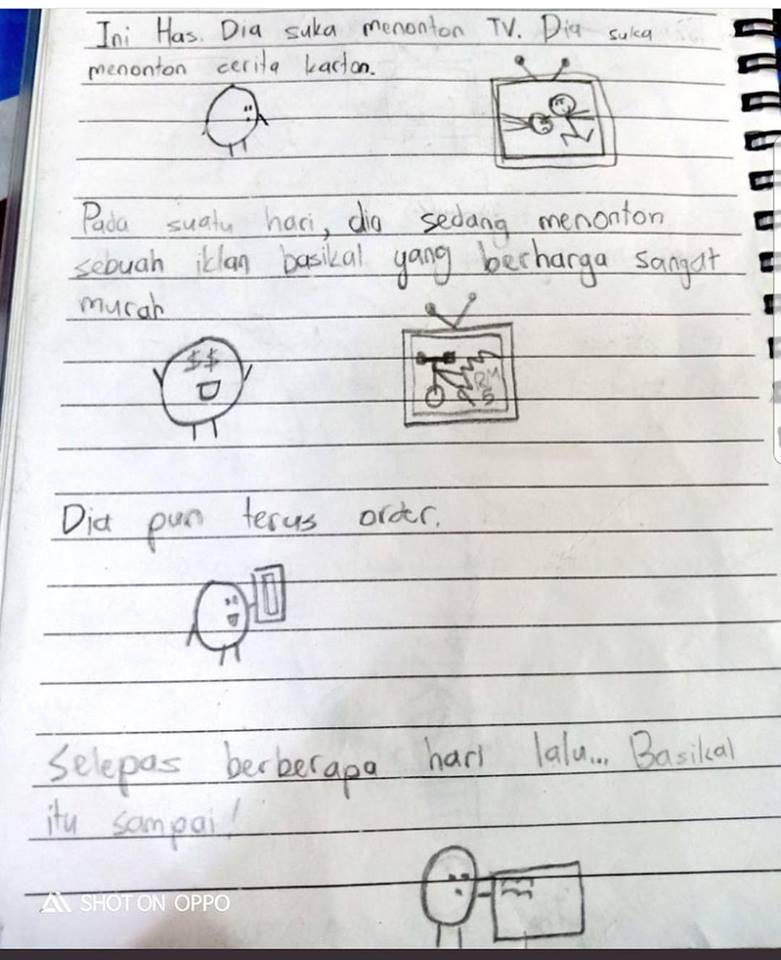 Ini Has. Dia suka menonton TV. Dia suka
menonton cerita karton.
Pada suatu hari, dia sedang menonton
sebuah iklan basikal yang berharga sangat
murah
$$
RM
5
Dia pun terus order.
Selepas berberapa hari lalu... Basikal
itu sampai!
SHOT ON OPPO